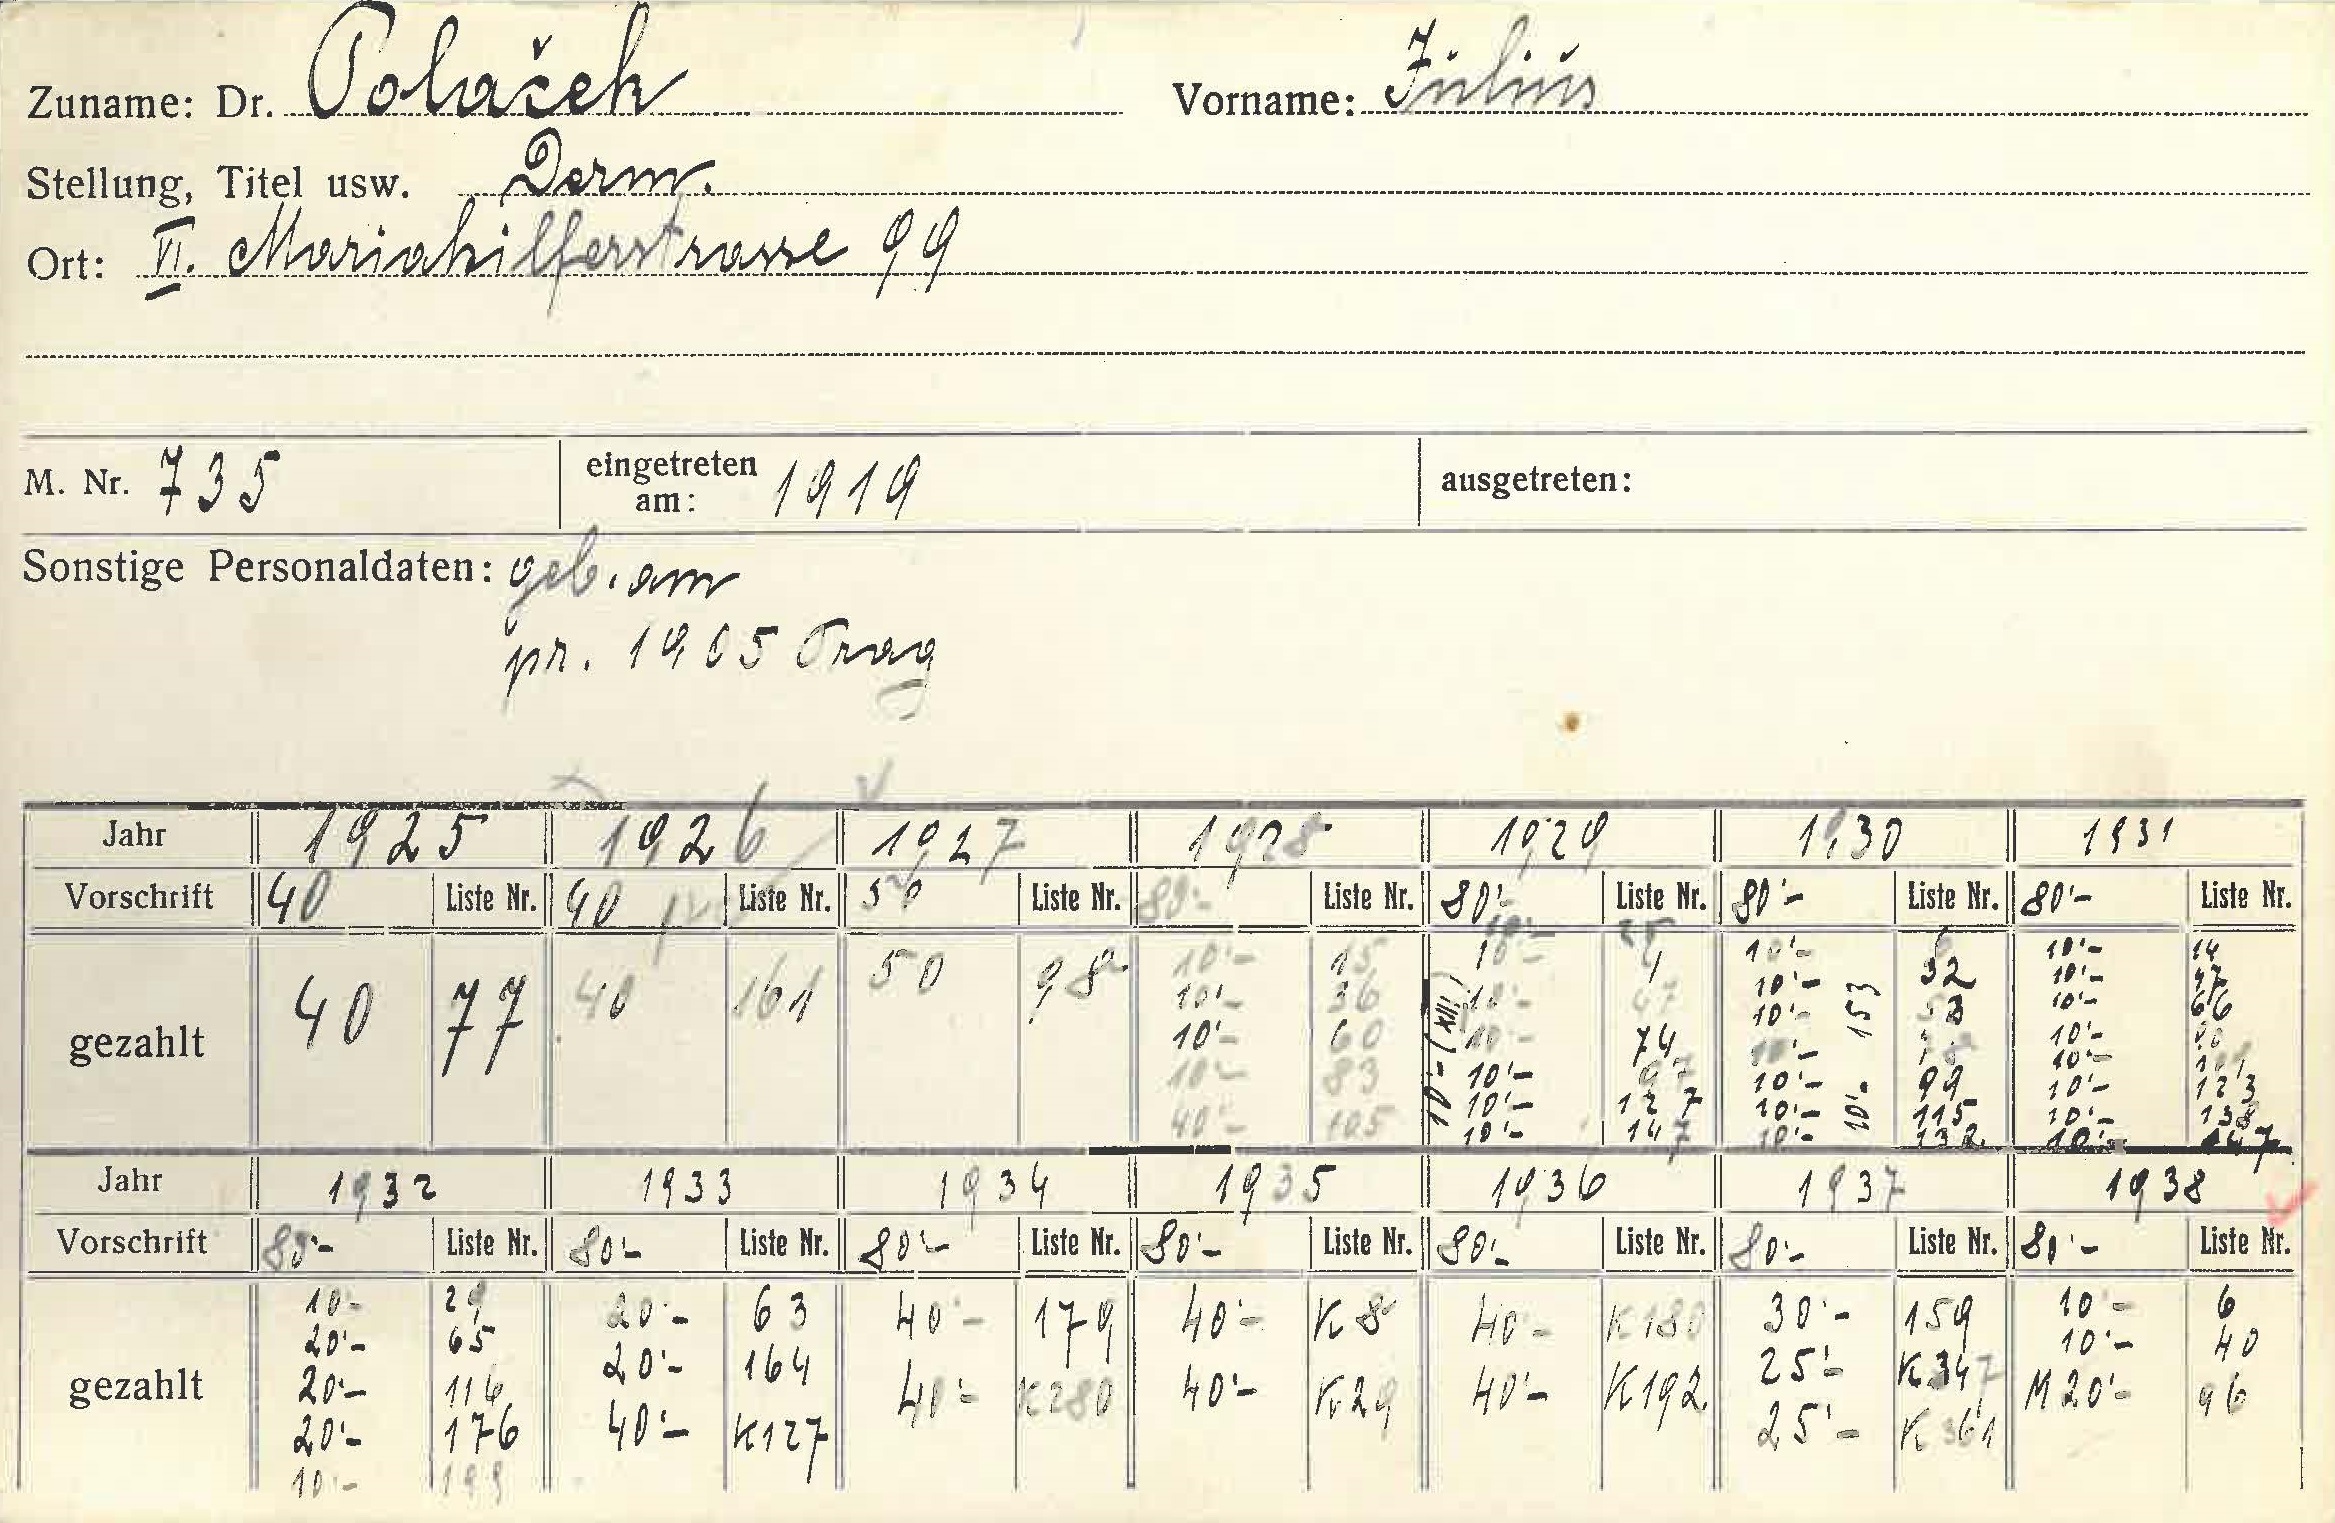 Zuname: Dr. Polašek Vorname: Julius
Stellung, Titel usw. Derm.
Ort: VI. Mariahilferstrasse 99
M. Nr. 735 eingetreten am: 1919 ausgetreten:
Sonstige Personaldaten: geb. am
pr. 1905 Prag
Jahr 1925 1926 1927 1928 1929 1930 1931
Vorschrift 40 Liste Nr. 40 Liste Nr. 50 Liste Nr. 80'- Liste Nr. 80'- Liste Nr. 80'- Liste Nr. 80'- Liste Nr.
gezahlt 40 77 40 161 50 98
10'- 15 10'- 1 10'- 10'- 14
10'- 36 10'- 47 10'- 32 10'- 47
10'- 60 10'- 74 10'- 53 10'- 66
10'- 83 10'- 97 10'- 10'- 90
40'- 105 10'- 127 10'- 99 10'-
10'- 147 10'- 115 10'- 123
10'- 132 10'- 138
10'- 147
10'- (XII)
10'- 153
Jahr 1932 1933 1934 1935 1936 1937 1938
Vorschrift 80'- Liste Nr. 80'- Liste Nr. 80'- Liste Nr. 80'- Liste Nr. 80'- Liste Nr. 80'- Liste Nr. 80'- Liste Nr.
gezahlt
10'- 29 20'- 63 40'- 179 40'- K 8 40'- K180 30'- 159 10'- 6
20'- 65 20'- 164 40'- K280 40'- K29 40'- K192 25'- K347 10'- 40
20'- 116 40'- K127 25'- K361 M 20'- 96
20'- 176
10'- 199